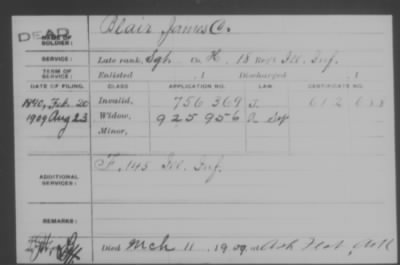 DEAD
NAME OF SOLDIER: Blair James C.
SERVICE: Late rank, Sgt. Co. H, 18 Reg't Ill. Inf.
TERM OF SERVICE: Enlisted , 1 Discharged , 1
DATE OF FILING. CLASS. APPLICATION NO. LAW. CERTIFICATE NO.
1890, Feb. 20 Invalid, 756 369 J.
1909 Aug 23 Widow, 925 956
Minor,
ADDITIONAL SERVICES: F. 145 Ill. Inf.
REMARKS:
Died Mch 11, 1909, at Ash Flat, Ark